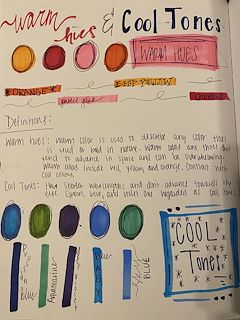 Warm hues & Cool Tones
WARM HUES
ORANGE
DEEP YELLOW
Definitions:
Warm hues: Warm color is used to describe any color that
is used to bold in nature. Warm colors are those that
tend to advance in space and can be overwhelming.
Warm colors include red, yellow, and orange. Contrast with
cool colors.
Cool Tones: Have shorter wavelengths and don't advance towards the
eye. Green, blue, and violet are regarded as cool
Prussian Blue
Aquamarine
BLUE
SKY BLUE
COOL
- the -
Tones